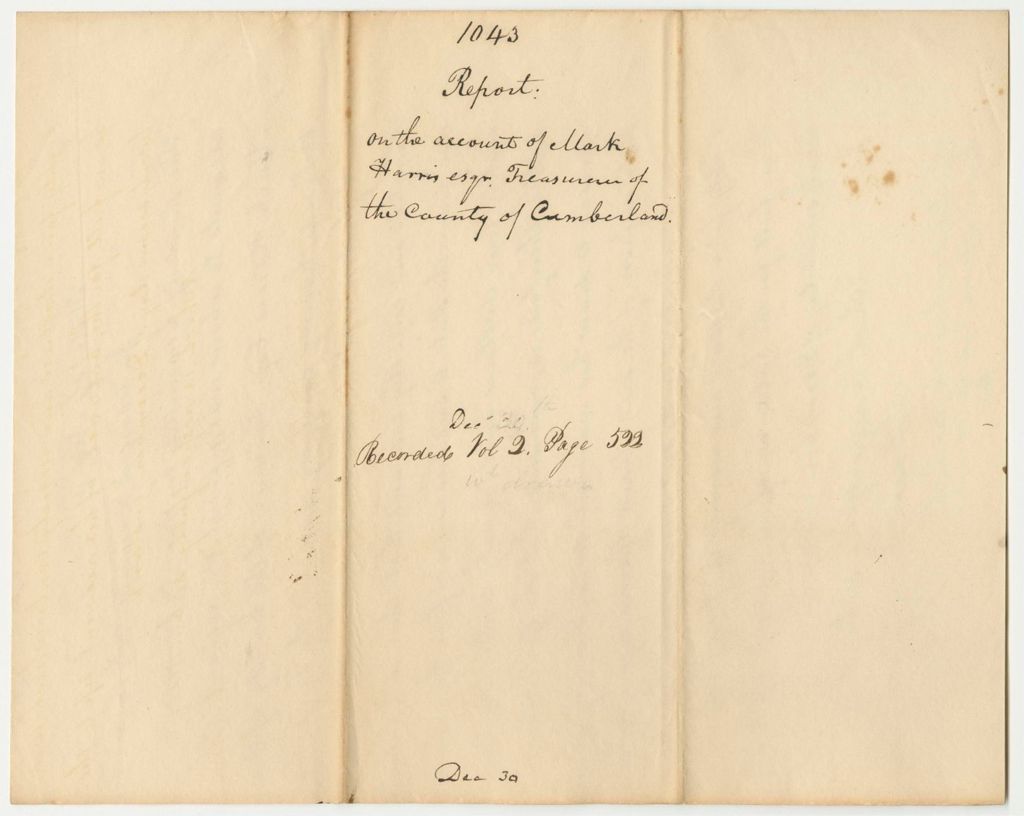 1043
Report.
on the account of Mark
Harris esqr. Treasurer of
the County of Cumberland.
Dec
Recorded Vol 2. Page 522
Dec 30